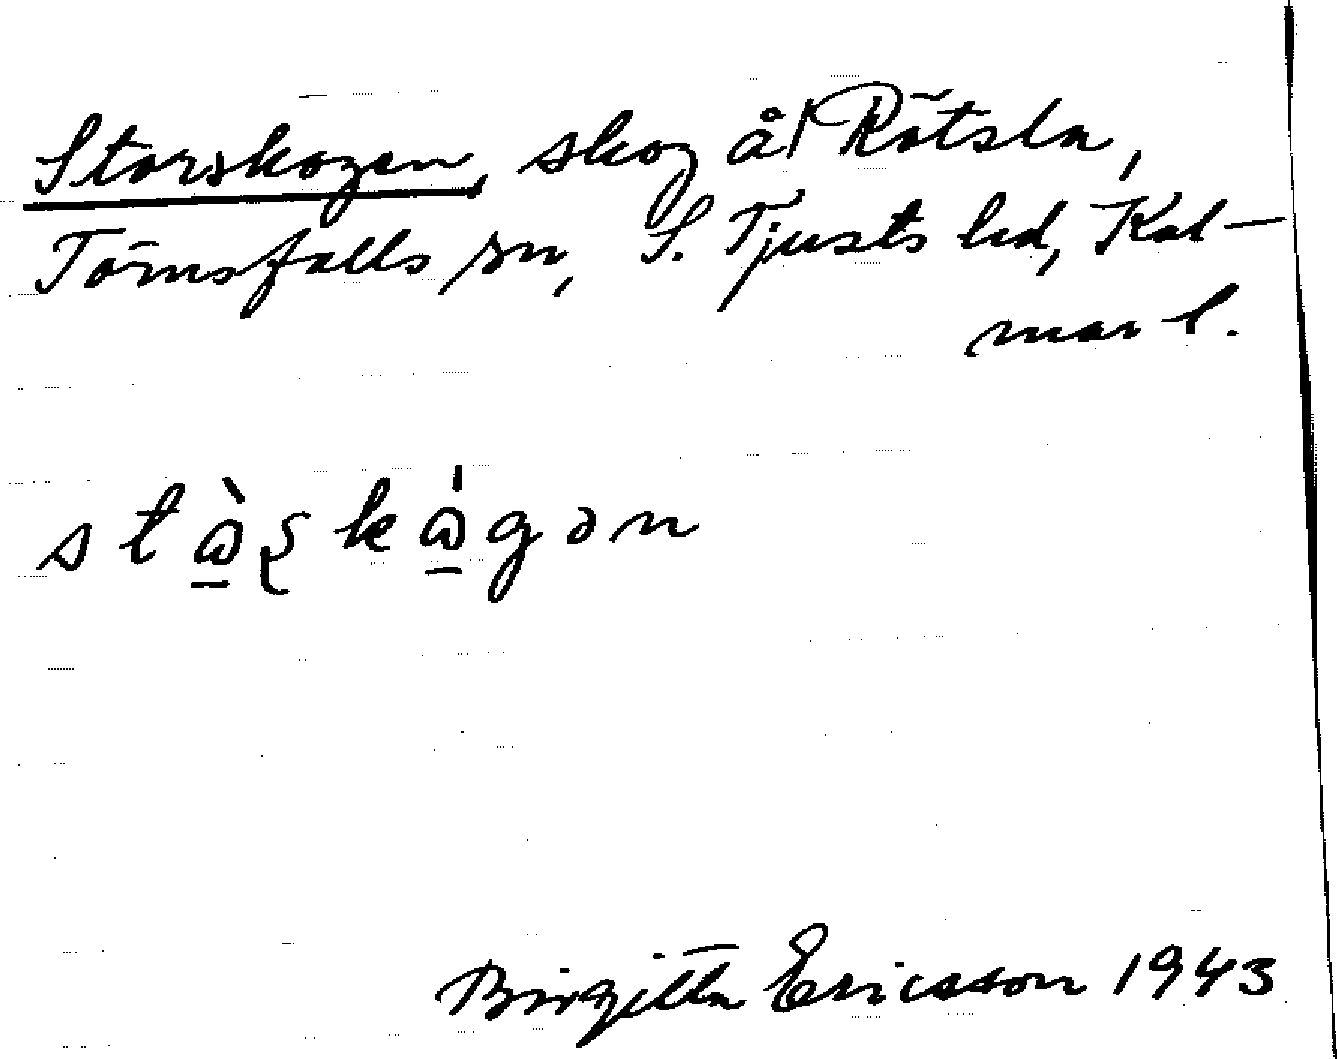 Storskogen, skog å Rötsla,
Törnsfalls sn, S. Tjusts hd, Kal-
mar l.
Birgitta Ericsson 1943